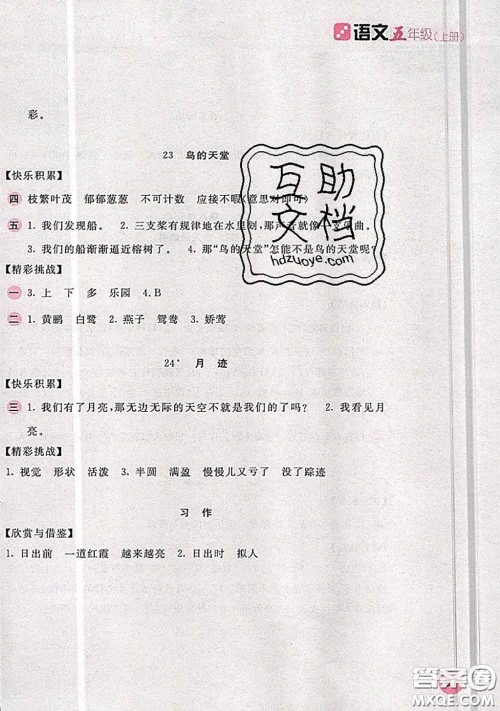 语文五年级(上册)
彩。
23 鸟的天堂
【快乐积累】
四 枝繁叶茂 郁郁葱葱 不可计数 应接不暇(意思对即可)
五 1. 我们发现船。 2. 三支桨有规律地在水里划,那声音就像一支乐曲。
3. 我们的船渐渐逼近榕树了。 4. 那“鸟的天堂”怎能不是鸟的天堂呢?
【精彩挑战】
一 3. 上 下 多 乐园 4. B
二 1. 黄鹂 白鹭 2. 燕子 鸳鸯 3. 娇莺
24* 月 迹
【快乐积累】
三 1. 我们有了月亮,那无边无际的天空不就是我们的了吗? 2. 我看见月
亮。
【精彩挑战】
1. 视觉 形状 活泼 3. 半圆 满盈 慢慢儿又亏了 没了踪迹
习 作
【欣赏与借鉴】
1. 日出前 一道红霞 越来越亮 2. 日出时 拟人
互助
文档
hdzuoye.com
答案圈
MXQE.COM